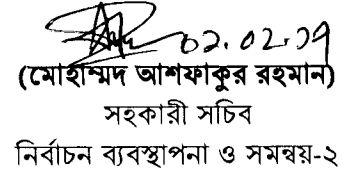 ০২.০২.১৭
(মোহাম্মদ আশফাকুর রহমান)
সহকারী সচিব
নির্বাচন ব্যবস্থাপনা ও সমন্বয়-২